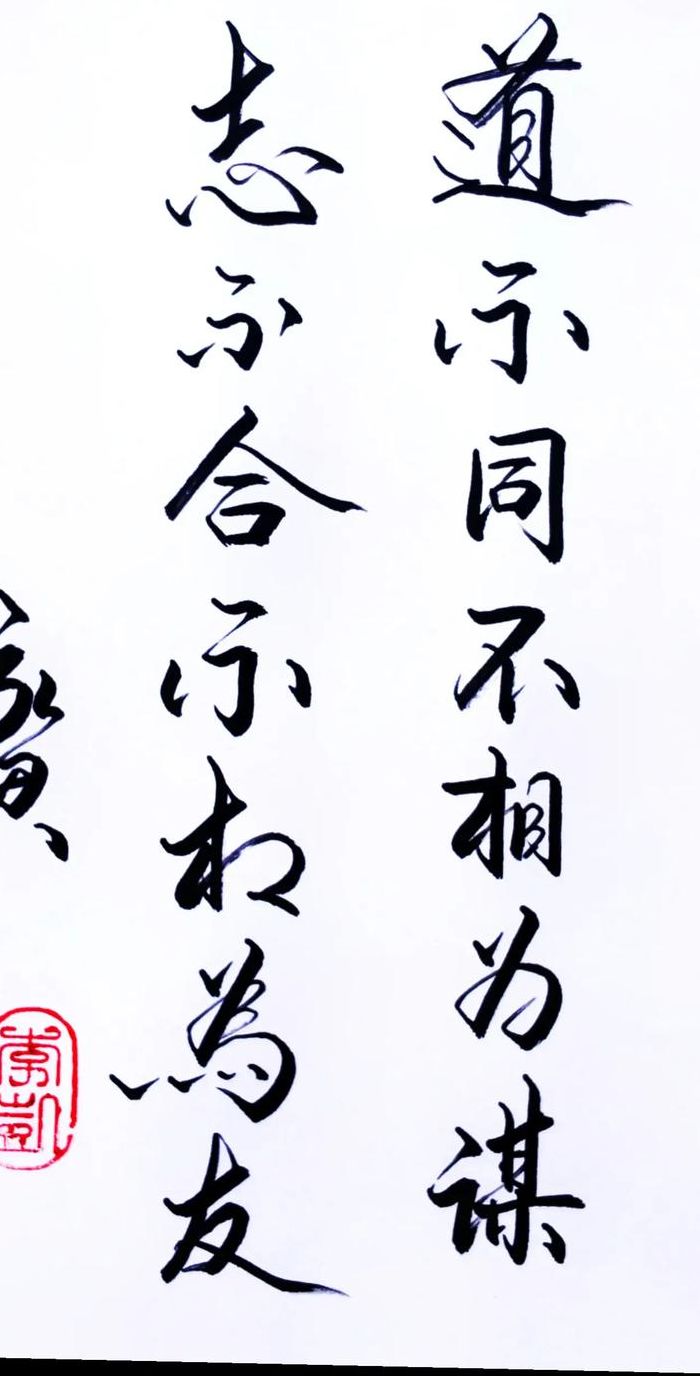 道不同不相为谋
志不合不相為友